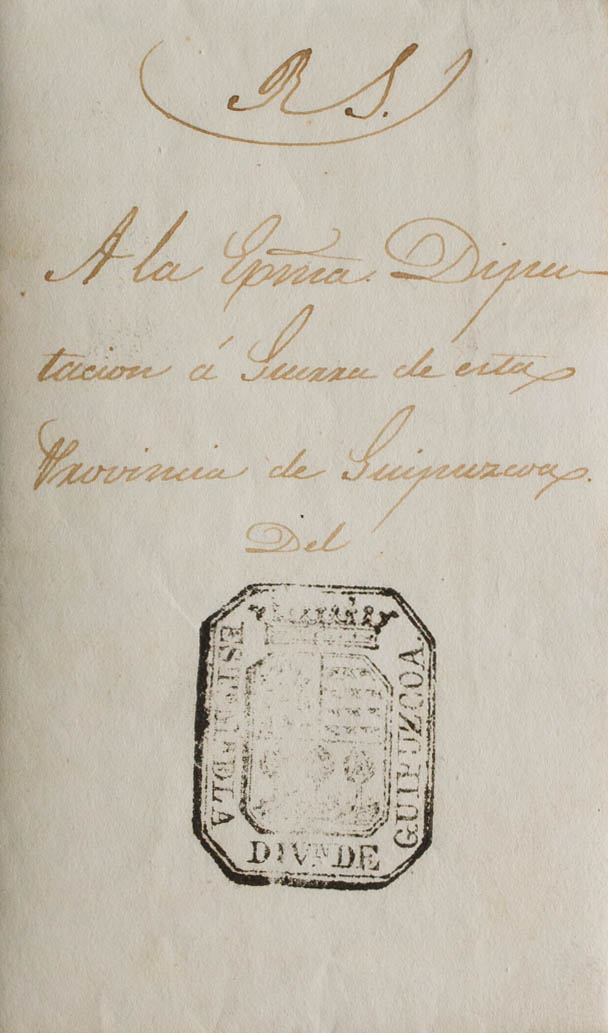 R S.
A la Exma. Dipu-
tacion á Guerra de esta
Provincia de Guipuzcoa.
Del
DIVN DE
GUIPUZCOA.